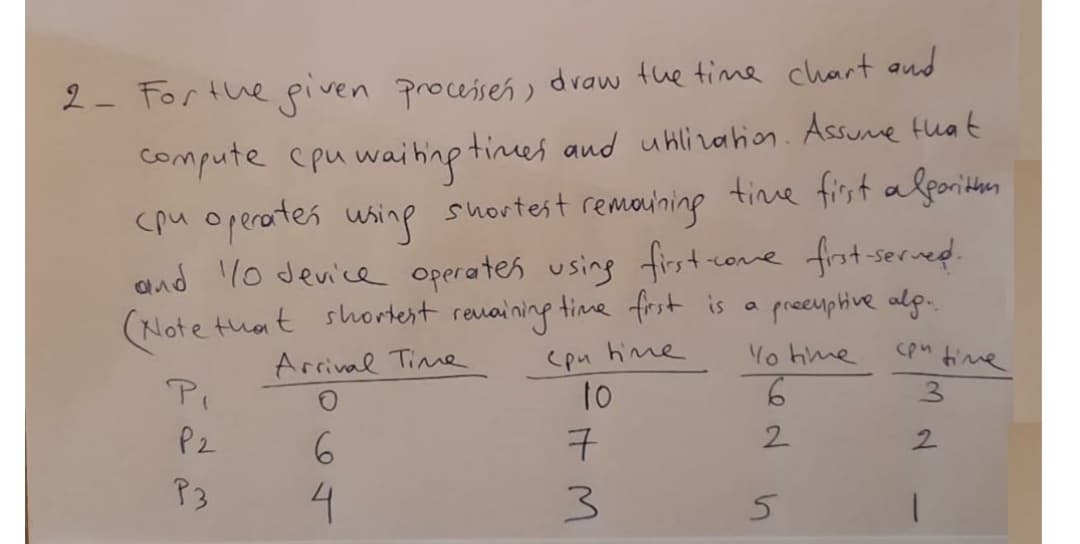 2- For the given processes, draw the time chart and
compute cpu waiting times and utilization. Assume that
cpu operates using shortest remaining time first algorithm
and I/O device operates using first-come first-served.
(Note that shortest remaining time first is a preemptive alg..
Arrival Time cpu time I/o time cpu time
P1 0 10 6 3
P2 6 7 2 2
P3 4 3 5 1